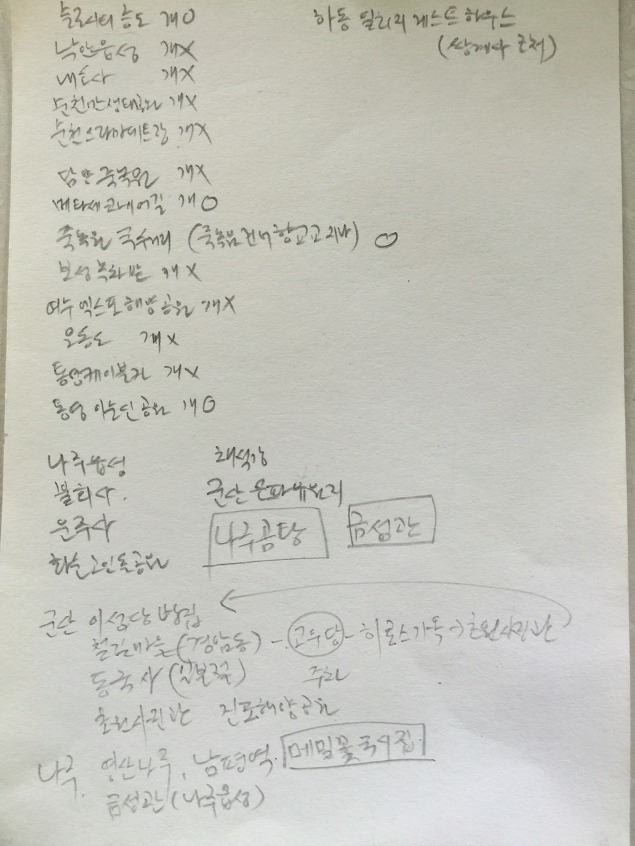 슬로시티 증도 개O
하동 달리리 게스트하우스
(쌍계사 근처)
낙안읍성 개X
내소사 개X
순천만생태공원 개X
순천드라마세트장 개X
담양 죽녹원 개X
메타세코이어길 개O
죽녹원 국수거리 (죽녹원건너향교고리나) O
보성녹차밭 개X
여수엑스포해양공원 개X
오동도 개X
통영케이블카 개X
통영 이순신공원 개O
나주읍성 채석강
불회사 군산 은파유원지
운주사 나주곰탕 금성관
화순고인돌공원
군산 이성당 빵집
철길마을(경암동) - 고우당 - 히로스가옥 → 초원사진관
동국사 (일본절) 주차
초원사진관 진포해양공원
나주. 영산나루, 남평역. 메밀꽃국시집
금성관(나주읍성)